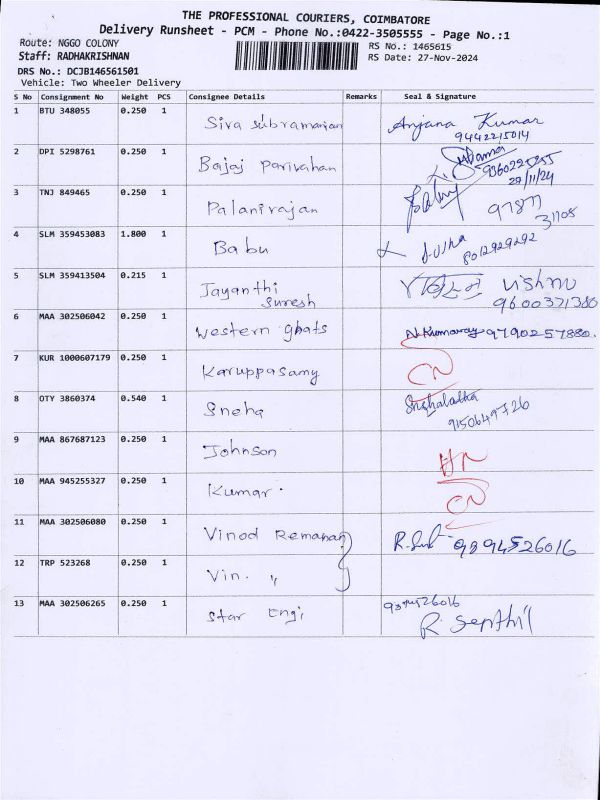 THE PROFESSIONAL COURIERS, COIMBATORE
Delivery Runsheet - PCM - Phone No.:0422-3505555 - Page No.:1
Route: NGGO COLONY
RS No.: 1465615
Staff: RADHAKRISHNAN
RS Date: 27-Nov-2024
DRS No.: DCJB146561501
Vehicle: Two Wheeler Delivery
S No Consignment No Weight PCS Consignee Details Remarks Seal & Signature
1 BTU 348055 0.250 1 Siva subramanian Anjana Kumar
9442215014
2 DPI 5298761 0.250 1 Bajaj parivahan
9360225255
27/11/24
3 TNJ 849465 0.250 1 Palanirajan 97877
31108
4 SLM 359453083 1.800 1 Babu Susha
8012929292
5 SLM 359413504 0.215 1 Jayanthi Vishnu
Suresh 9600371380
6 MAA 302506042 0.250 1 western ghats N. Kumaray 9790257880.
7 KUR 1000607179 0.250 1 Karuppasamy
8 OTY 3860374 0.540 1 Sneha Snehalatha
9150649726
9 MAA 867687123 0.250 1 Johnson
10 MAA 945255327 0.250 1 Kumar.
11 MAA 302506080 0.250 1 Vinod Remanan 9894526016
12 TRP 523268 0.250 1 Vin. "
13 MAA 302506265 0.250 1 Star Engi
R. Senthil